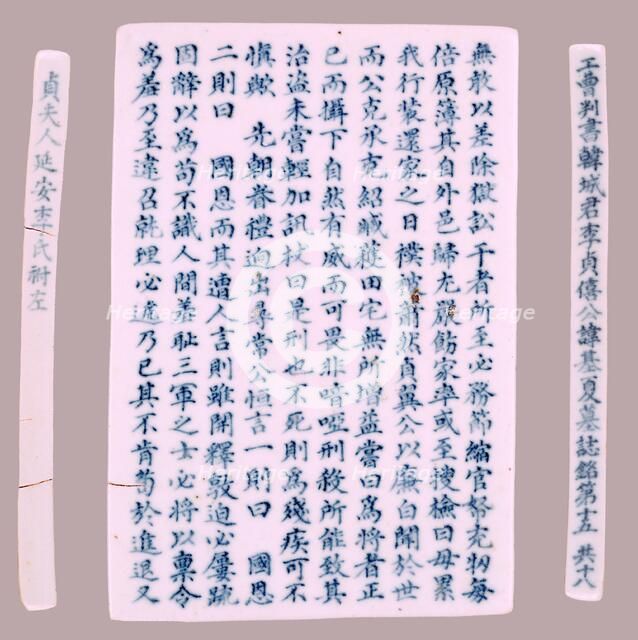 工曹判書韓城君李貞僖公諱基夏墓誌銘第十五 共十八
無敢以差除獄訟干者所至必務節縮官帑充牣每
倍原簿其自外邑歸尤嚴飭家率或至搜檢曰毋累
我行裝還家之日襆被蕭然貞翼公以廉白聞於世
而公克承克紹臧穫田宅無所增益嘗曰爲將者正
己而攝下自然有威而可畏非喑啞刑殺所能致其
治盜未嘗輕加訊杖曰是刑也不死則爲殘疾可不
愼歟 先朝眷禮逈出尋常公恒言一則曰 國恩
二則曰 國恩而其遭人言則雖開釋敦迫必屢疏
固辭以爲苟不識人間羞恥三軍之士必將以稟令
爲羞乃至違召就理必遞乃已其不肯苟於進退又
貞夫人延安李氏祔左
Heritage
Heritage
Heritage
Heritage
Heritage
Heritage